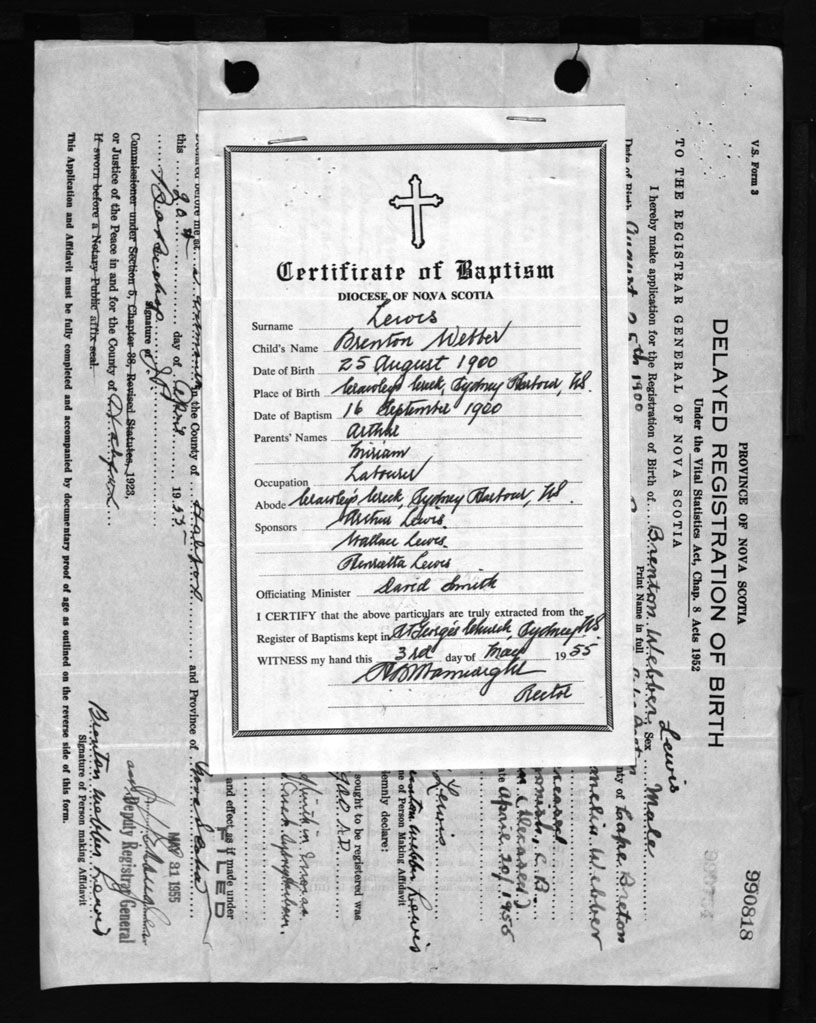 Certificate of Baptism
DIOCESE OF NOVA SCOTIA
Surname Lewis
Child's Name Brenton Webber
Date of Birth 25 August 1900
Place of Birth Crawley's Creek, Sydney Harbour, NS.
Date of Baptism 16 September 1900
Parents' Names Arthur
Miriam
Occupation Labourer
Abode Crawley's Creek, Sydney Harbour, NS.
Sponsors Arthur Lewis.
Wallace Lewis.
Henrietta Lewis
Officiating Minister David Smith
I CERTIFY that the above particulars are truly extracted from the
Register of Baptisms kept in St George's Church, Sydney NS.
WITNESS my hand this 3rd day of May 1955
Rector
V.S. Form 3
990818
PROVINCE OF NOVA SCOTIA
DELAYED REGISTRATION OF BIRTH
Under the Vital Statistics Act, Chap. 8 Acts 1952
TO THE REGISTRAR GENERAL OF NOVA SCOTIA
Lewis
I hereby make application for the Registration of Birth of Brenton Webber, Sex Male
Print Name in full
Date of Birth August 25th 1900 Cape Breton
Webber
(Deceased)
April 20/1955
Lewis
Webber Lewis
of Person Making Affidavit
lemnly declare:
sought to be registered was
900 A.D.
and effect as if made under
FILED
Declared before me at in the County of and Province of Nova Scotia
this 20 day of April 1955
Signature of J.P.
Commissioner under Section 5, Chapter 38, Revised Statutes, 1923,
or Justice of the Peace in and for the County of
If sworn before a Notary Public affix seal.
MAY 31 1955
Deputy Registrar General
Brenton Webber Lewis
Signature of Person making Affidavit
This Application and Affidavit must be fully completed and accompanied by documentary proof of age as outlined on the reverse side of this form.